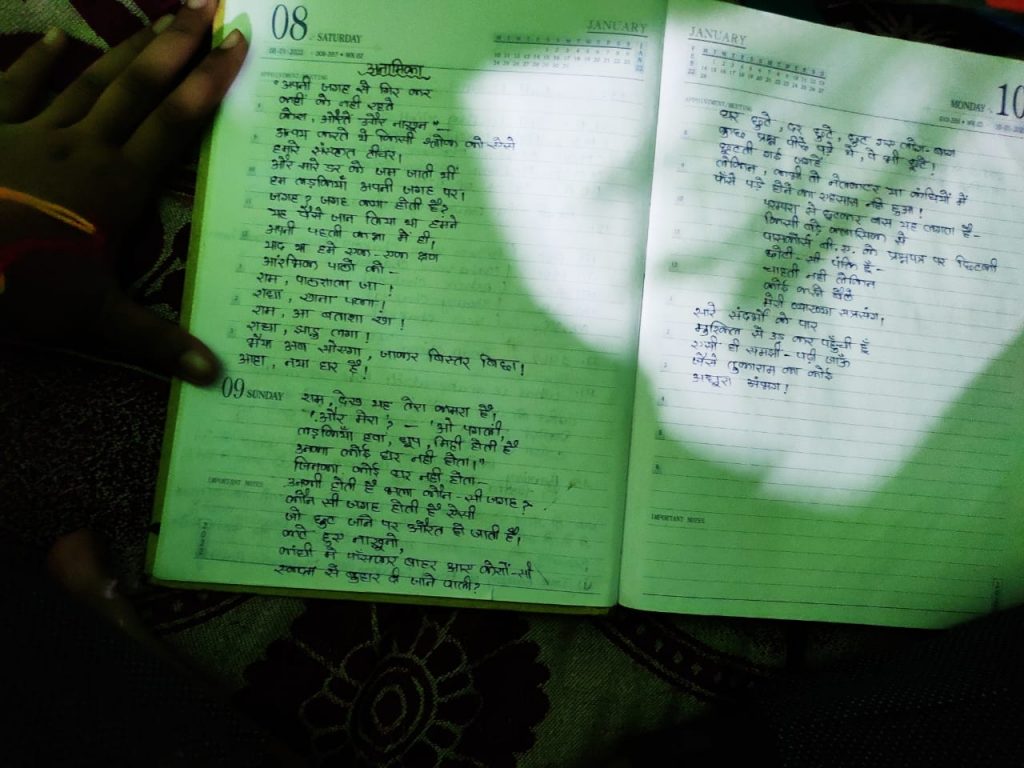 08
SATURDAY
JANUARY
अनामिका
"अपनी जगह से गिर कर
कहीं के नहीं रहते
केश, औरतें और नाखून" -
अन्वय करते थे किसी श्लोक को ऐसे
हमारे संस्कृत टीचर।
और मारे डर के जम जाती थीं
हम लड़कियाँ अपनी जगह पर।
जगह? जगह क्या होती है?
यह वैसे जान लिया था हमने
अपनी पहली कक्षा में ही।
याद था हमें एक-एक क्षण
आरंभिक पाठों का -
राम, पाठशाला जा !
राधा, खाना पका !
राम, आ बताशा खा !
राधा, झाड़ू लगा !
भैया अब सोएगा, जाकर बिस्तर बिछा !
अहा, नया घर है !
09 SUNDAY
राम, देख यह तेरा कमरा है!
'और मेरा?' - 'ओ पगली
लड़कियाँ हवा, धूप, मिट्टी होती हैं
उनका कोई घर नहीं होता।"
जिनका कोई घर नहीं होता-
उनकी होती है भला कौन-सी जगह?
कौन सी जगह होती है ऐसी
जो छूट जाने पर औरत हो जाती है।
कटे हुए नाखूनों,
कंघी में फँसकर बाहर आए केशों-सी
एकदम से बुहार दी जाने वाली?
IMPORTANT NOTES
2022
JANUARY
MONDAY
10
APPOINTMENT/MEETING
घर छूटे, दर छूटे, छूट गए लोग-बाग
कुछ प्रश्न पीछे पड़े थे, वे भी छूटे!
छूटती गई जगहें
लेकिन, कभी तो नेलकटर या कंघियों में
फँसे पड़े होने का एहसास नहीं हुआ!
परंपरा से छूटकर बस यह लगता है-
किसी बड़े क्लासिक से
पासकोर्स बी.ए. के प्रश्नपत्र पर छिटकी
छोटी-सी पंक्ति हूँ-
चाहती नहीं लेकिन
कोई करने बैठे
मेरी व्याख्या सप्रसंग।
सारे संदर्भों के पार
मुश्किल से उड़ कर पहुँची हूँ
ऐसी ही समझी-पढ़ी जाऊँ
जैसे तुकाराम का कोई
अधूरा अभंग!
IMPORTANT NOTES